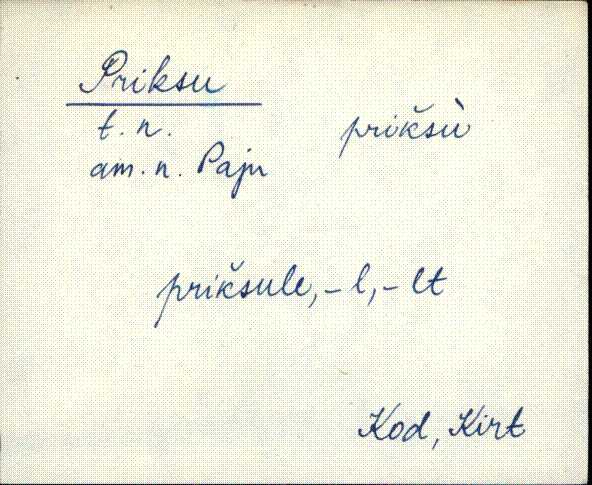 Priksu
t. n. prikšù
am. n. Paju
prikšule, - l, - lt
Kod, Kirt